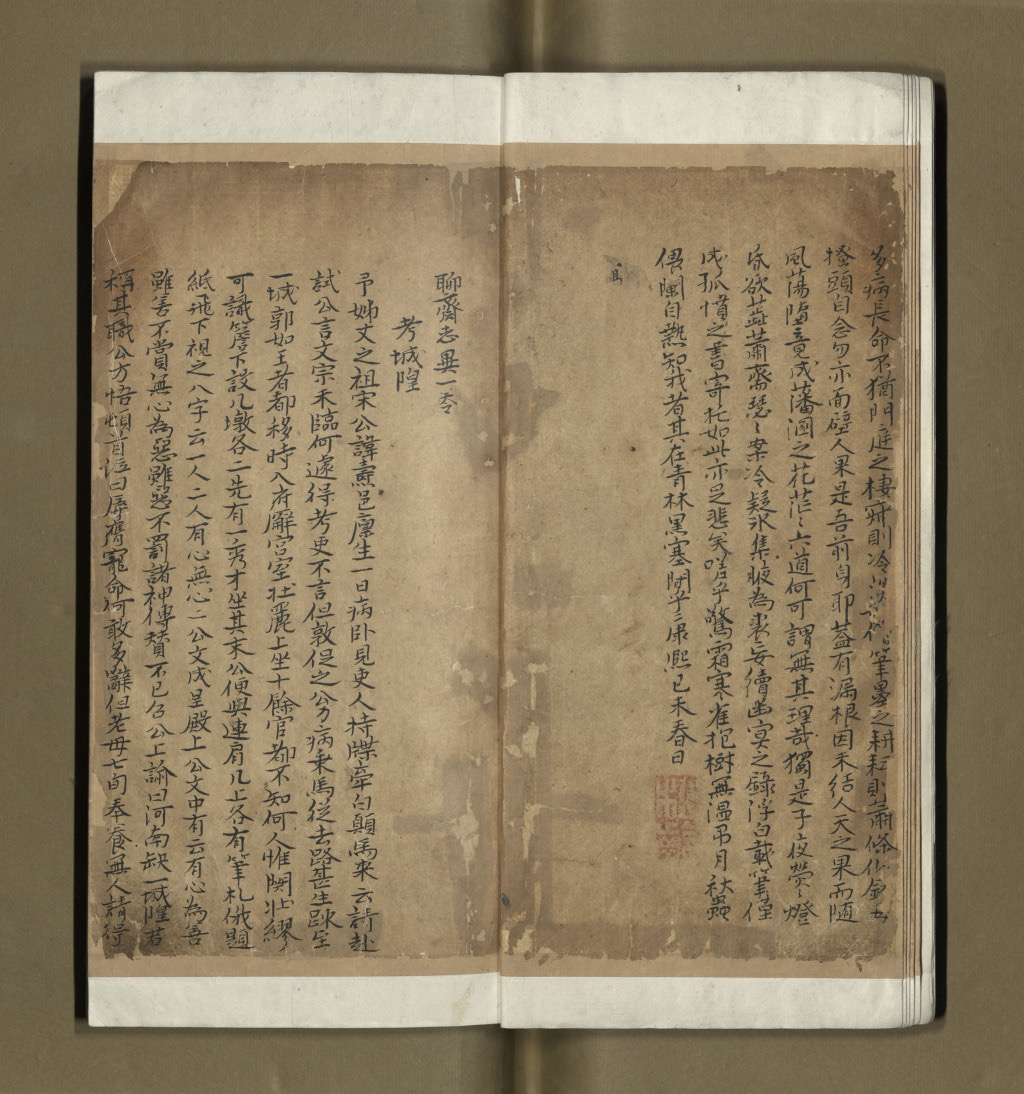 多病長命不猶門庭之棲寂則冷淡如僧筆墨之耕耘則蕭條似鉢每
搔頭自念勿亦面壁人果是吾前身耶蓋有漏根因未結人天之果而隨
風蕩墮竟成藩溷之花茫〻六道何可謂無其理哉獨是子夜熒〻燈
昏欲蕊蕭齋瑟〻案冷疑冰集腋為裘妄續幽冥之錄浮白載筆僅
成孤憤之書寄托如此亦足悲矣嗟乎驚霜寒雀抱樹無溫弔月秋蟲
偎闌自熱知我者其在青林黑塞間乎康熙己未春日
聊齋志異一卷
考城隍
予姊丈之祖宋公諱燾邑廩生一日病臥見吏人持牒牽白顛馬來云請赴
試公言文宗未臨何遽得考吏不言但敦促之公力病乗馬從去路甚生踈至
一城郭如王者都移時入府廨宮室壯麗上坐十餘官都不知何人惟関壯繆
可識簷下設几墩各二先有一秀才坐其末公便與連肩几上各有筆札俄題
紙飛下視之八字云一人二人有心無心二公文成呈殿上公文中有云有心為善
雖善不賞無心為惡雖惡不罰諸神傳贊不已召公上諭曰河南缺一城隍君
稱其職公方悟頓首泣曰辱膺寵命何敢多辭但老母七旬奉養無人請得